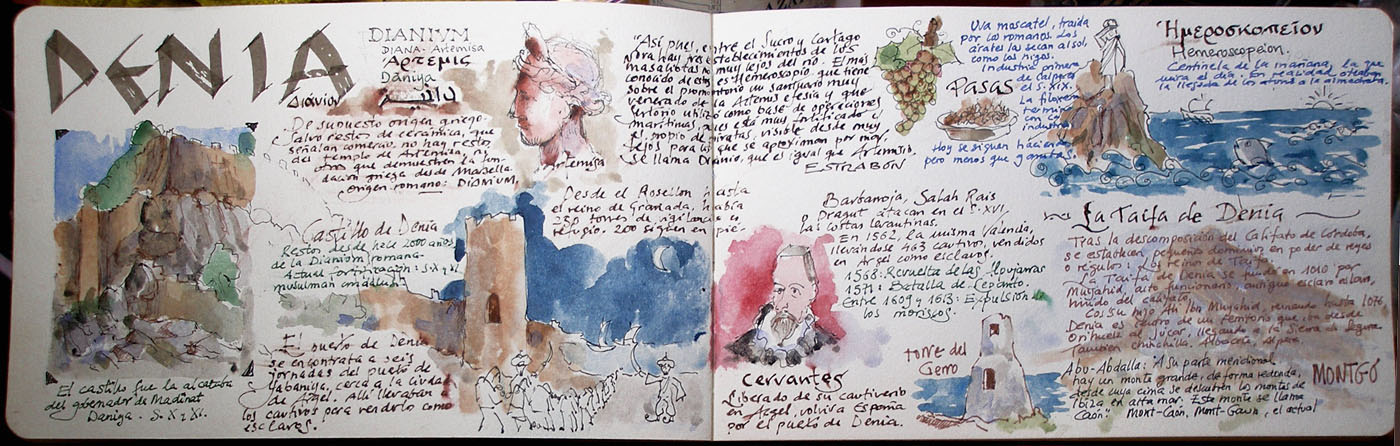 DENIA
DIANIVM
DIANA-Artemisa
ἌΡΤΕΜΙC
Dāniya
دانية
Διάνιον
De supuesto origen griego.
Salvo restos de cerámica, que
señalan comercio, no hay restos
del templo de Artemisa, ni
otros que demuestren la fun-
dación griega desde Marsella.
Origen romano: DIANIUM.
Artemisa
"Así pues, entre el Sucro y Cartago
Nova hay tres establecimientos de los
masaliotas no muy lejos del río. El mas
conocido de estos es Hemeroscopio, que tiene
sobre el promontorio un santuario muy
venerado de la Artemis efesia y que
Sertorio utilizó como base de operaciones
marítimas, pues está muy fortificado
propio de piratas, visible desde muy
lejos para los que se aproximan por mar,
se llama Dianio, que es igual que Artemisio.
ESTRABÓN
Uva moscatel, traída
por los romanos. Los
árabes las secan al sol,
como los higos.
Industria primera
de
el S. XIX.
La filoxera
termina
con la
industria
Hoy se siguen haciendo
pero menos que
Pasas
Ἡμεροσκοπεῖον
Hemeroscopeion.
Centinela de la mañana, la que
mira el día. En realidad oteaban
la llegada de los atunes a la almadraba
El castillo fue la alcazaba
del gobernador de Madinat
Daniya. S. X y XI.
Castillo de Denia
Restos desde hace 2000 años
de la Dianium romana.
Actual fortificación: S. X y XI
musulmán andalusí
El puerto de Denia
se encontraba a seis
jornadas del puerto de
cerca a la ciudad
de Argel. Allí llevaban
los cautivos para venderlos como
esclavos.
Desde el Rosellón hasta
el reino de Granada, había
torres de vigilancia o
refugio. 200 siguen en pie.
Barbarroja, Salah Rais
o Dragut atacan en el S. XVI,
las costas levantinas.
En 1562 la misma Valencia,
llevándose 463 cautivos, vendidos
en Argel como esclavos.
1568: Revuelta de las Alpujarras
1571: Batalla de Lepanto.
Entre 1609 y 1613: Expulsión de
los moriscos.
Cervantes
Liberado de su cautiverio
en Argel, volvió a España
por el puerto de Denia.
Torre del
Gerro
La Taifa de Denia
Tras la descomposición del Califato de Córdoba,
se establecen pequeños dominios en poder de reyes
o régulos: Los Reinos de Taifas.
La Taifa de Denia se funda en 1010 por
Muyahid, alto funcionario, antiguo esclavo
del califato.
Con su hijo Alí Ibn Muyahid, reinando hasta 1076,
Denia es centro de un territorio que iba desde
Orihuela al Júcar, llegando a la Sierra de Segura
También Chinchilla, Albacete,
Abu-Abdalla: "A su parte meridional
hay un monte grande, de forma redonda,
desde cuya cima se descubren los montes de
Ibiza en alta mar. Este monte se llama
Caón". Mont-Caón, Mont-Gaun, el actual
MONTGÓ